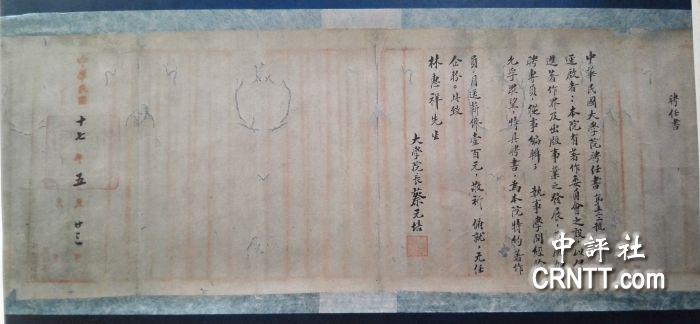 聘任書
中華民國大學院聘任書
逕啟者:本院有著作委員會之設,以
進著作界及出版事業之發展,
聘專員,從事編輯; 執事學問經
允孚眾望,特具聘書,為本院特約著作
員,月送薪俸壹百元,敬祈 俯就,无任
企盼。此致
林惠祥先生
大學院長 蔡元培
中華民國 十七 年 五 月 廿三
中評社
CRNTT.com